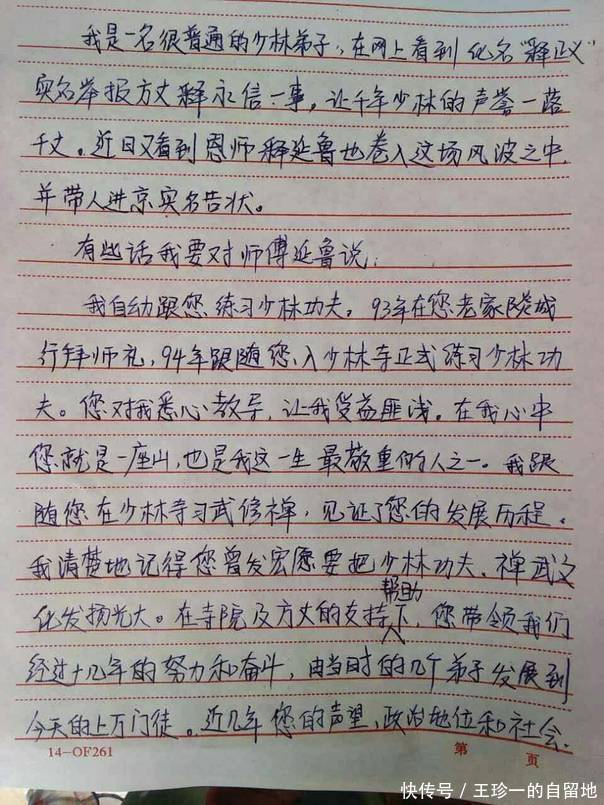 我是一名很普通的少林弟子,在网上看到化名"释正义"
实名举报方丈释永信一事,让千年少林的声誉一落
千丈。近日又看到恩师释延鲁也卷入这场风波之中,
并带人进京实名告状。
有些话我要对师傅延鲁说:
我自幼跟您练习少林功夫。93年在您老家郯城
行拜师礼,94年跟随您入少林寺正式练习少林功
夫。您对我悉心教导,让我受益匪浅。在我心中
您就是一座山,也是我这一生最敬重的人之一。我跟
随您在少林寺习武修禅,见证了您的发展历程。
我清楚地记得您曾发宏愿要把少林功夫、禅武文
化发扬光大。在寺院及方丈的支持帮助下,您带领我们
经过十几年的努力和奋斗,由当时的几个弟子发展到
今天的上万门徒。近几年您的声望、政治地位和社会
14-OF261 第 页
快传号/王珍一的自留地